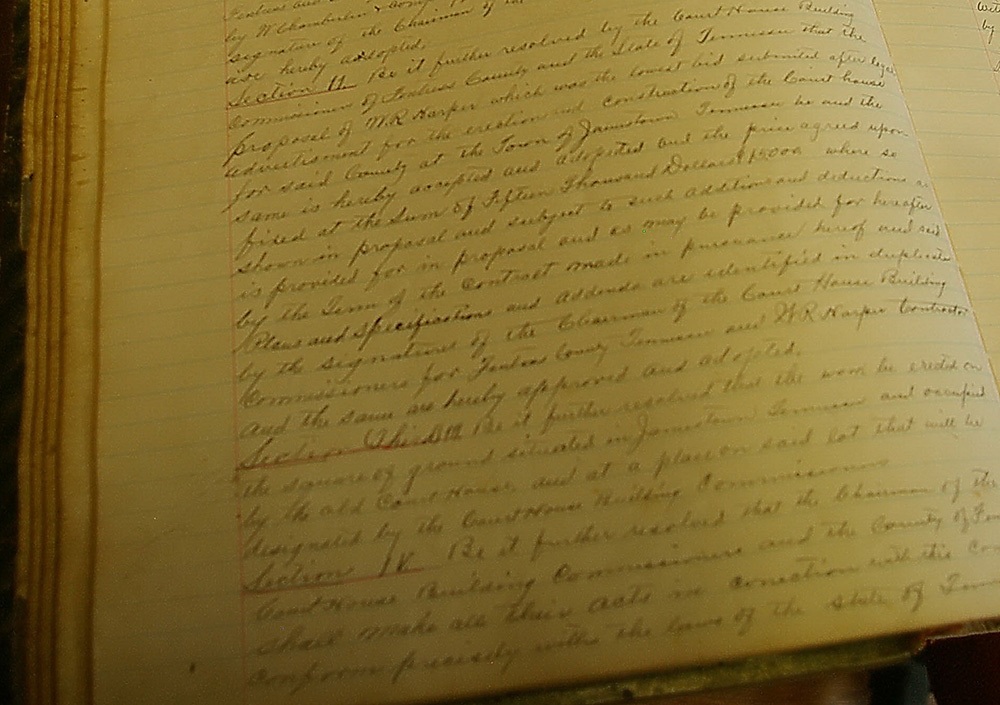 Fentress
by W Chamberlin & Comp
Signature of the Chairman of the
are hereby adopted.
Section 11 Be it further resolved by the Court House Building
Commissioners of Fentress County and the State of Tennessee that the
proposal of W.R Harper which was the lowest bid submited after legal
advertisment for the erection and construction of the Court house
for said County at the Town of Jamestown Tennessee be and the
same is hereby accepted and adopted and the price agreed upon
fixed at the Sum of Fifteen Thousand Dollars $15000 where so
shown in proposal and subject to such additions and deductions as
is provided for in proposal and as may be provided for hereafter
by the Term of the Contract made in pursuance hereof and said
Plans and Specifications and Addenda are identified in duplicate
by the signatures of the Chairman of the Court House Building
Commissioners for Fentress County Tennessee and W.R Harper Contractor
and the same are hereby approved and adopted.
Section Third Be it further resolved that the work be erected on
the square of ground situated in Jamestown Tennessee and occupied
by the old Court House, and at a place on said lot that will be
designated by the Court House Building Commissioners
Section IV Be it further resolved that the Chairman of the
Court House Building Commissioners and the County of
shall make all their acts in conection with this
conform precisely with the laws of the State of